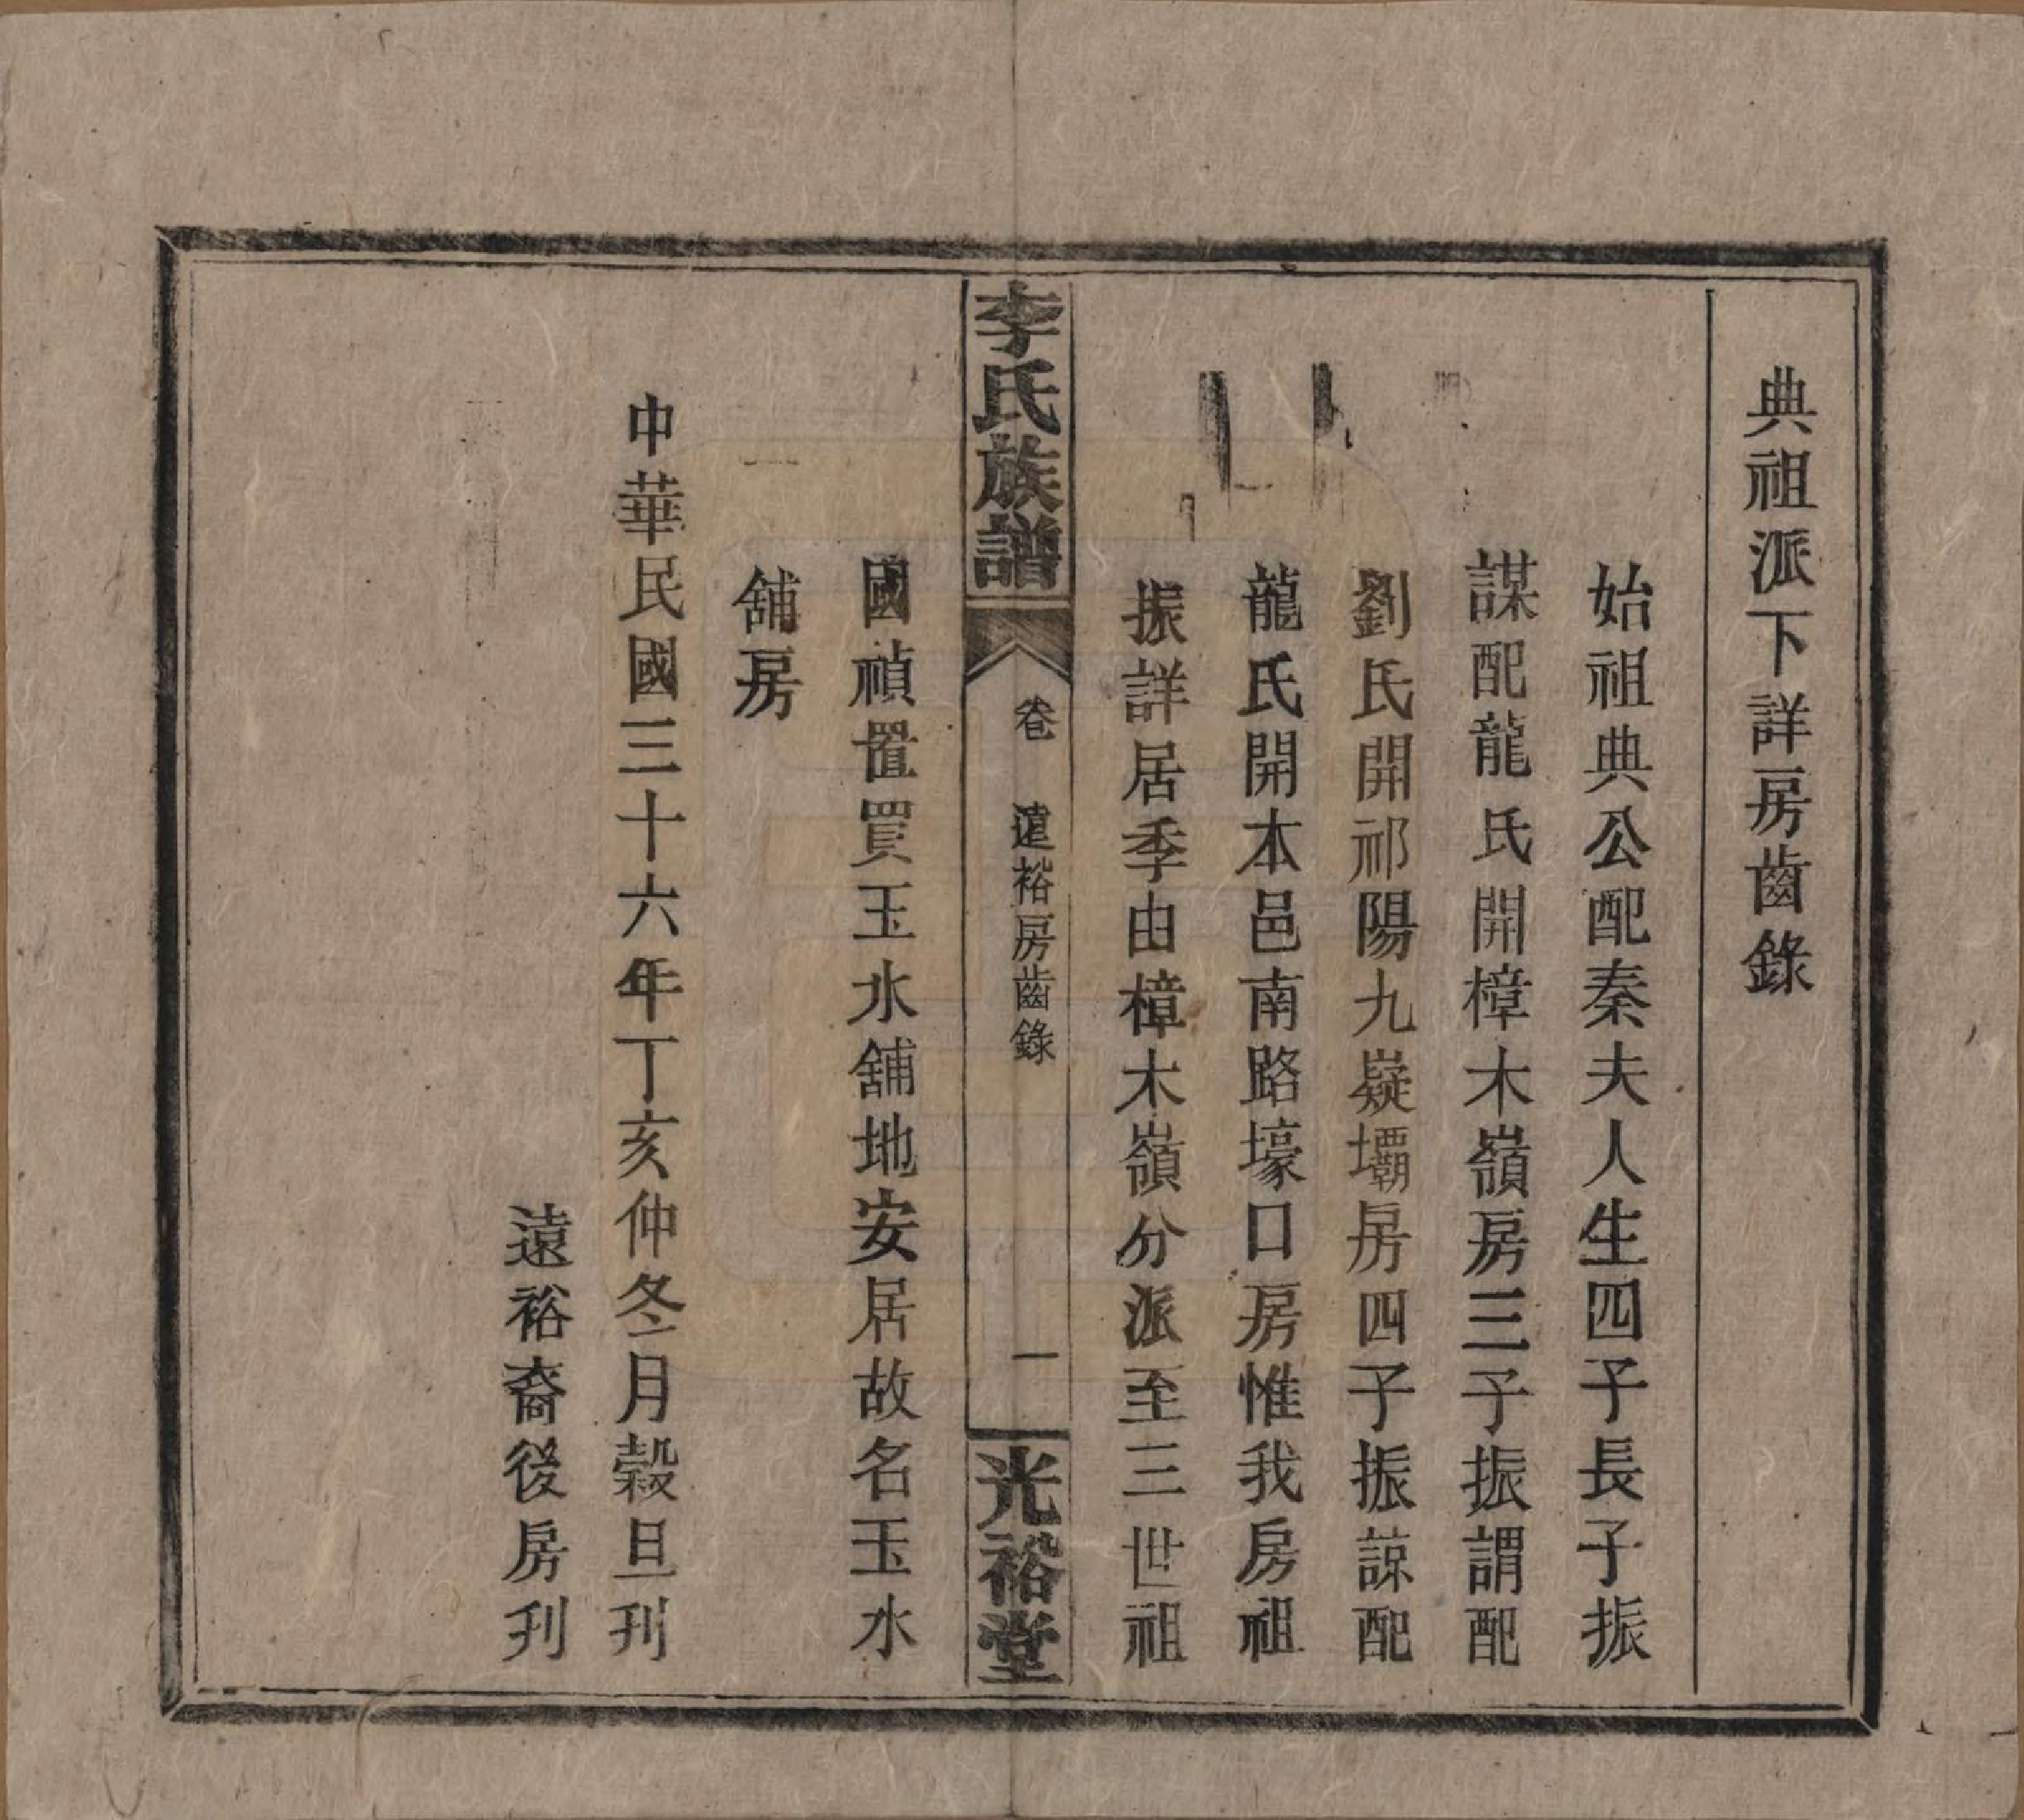 典祖派下詳房齒錄
始祖典公配秦夫人生四子長子振
謀配龍氏開樟木嶺房三子振謂配
劉氏開祁陽九嶷壩房四子振諒配
龍氏開本邑南路壕口房惟我房祖
振詳居季由樟木嶺分派至三世祖
李氏族譜
卷
遠裕房齒錄
一
光裕堂
國禎置買玉水舖地安居故名玉水
舖房
中華民國三十六年丁亥仲冬月榖旦刊
遠裕裔後房刋